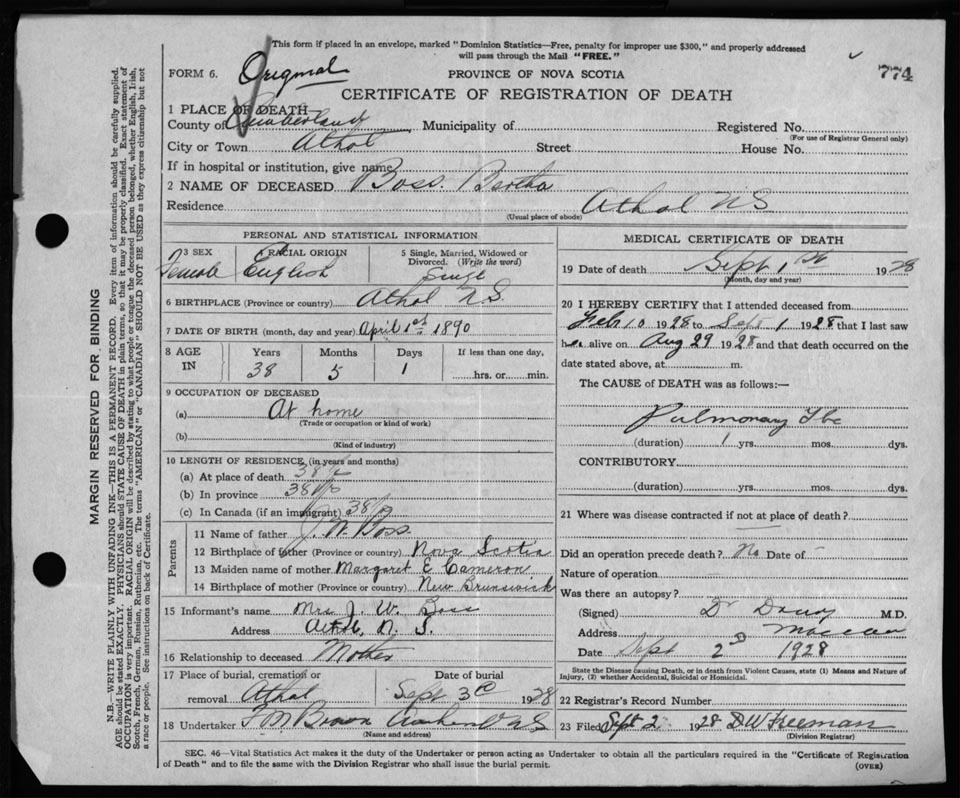 This form if placed in an envelope, marked "Dominion Statistics—Free, penalty for improper use $300," and properly addressed
will pass through the Mail "FREE."
774
FORM 6. Original PROVINCE OF NOVA SCOTIA
CERTIFICATE OF REGISTRATION OF DEATH
1 PLACE OF DEATH
County of Cumberland Municipality of Registered No.
(For use of Registrar General only)
City or Town Athol Street House No.
If in hospital or institution, give name
2 NAME OF DECEASED Boss. Bertha
Residence Athol NS
(Usual place of abode)
PERSONAL AND STATISTICAL INFORMATION
3 SEX Female
RACIAL ORIGIN English
5 Single, Married, Widowed or
Divorced. (Write the word)
Single
6 BIRTHPLACE (Province or country) Athol N.S.
7 DATE OF BIRTH (month, day and year) April 1st 1890
8 AGE IN Years Months Days If less than one day,
38 5 1 hrs. or min.
9 OCCUPATION OF DECEASED
(a) At home
(Trade or occupation or kind of work)
(b)
(Kind of industry)
10 LENGTH OF RESIDENCE (in years and months)
(a) At place of death 38
(b) In province 38
(c) In Canada (if an immigrant) 38
Parents
11 Name of father J. W. Boss.
12 Birthplace of father (Province or country) Nova Scotia
13 Maiden name of mother Margaret E Cameron
14 Birthplace of mother (Province or country) New Brunswick
15 Informant's name Mrs J. W. Boss
Address Athol, N. S.
16 Relationship to deceased Mother
17 Place of burial, cremation or Date of burial
removal Athol Sept 3 1928
18 Undertaker Brown N S
(Name and address)
MEDICAL CERTIFICATE OF DEATH
19 Date of death Sept 1st 1928
(Month, day and year)
20 I HEREBY CERTIFY that I attended deceased from
Feb 10 1928 to Sept 1 1928 that I last saw
her alive on Aug 29 1928 and that death occurred on the
date stated above, at m.
The CAUSE of DEATH was as follows:—
Pulmonary Tbc
(duration) 1 yrs. mos. dys.
CONTRIBUTORY
(duration) yrs. mos. dys.
21 Where was disease contracted if not at place of death?
Did an operation precede death? No Date of -
Nature of operation
Was there an autopsy?
(Signed) Dr M.D.
Address Maccan
Date Sept 2D 1928
State the Disease causing Death, or in death from Violent Causes, state (1) Means and Nature of
Injury, (2) whether Accidental, Suicidal or Homicidal.
22 Registrar's Record Number
23 Filed Sept 2 1928 DW Freeman
(Division Registrar)
SEC. 46—Vital Statistics Act makes it the duty of the Undertaker or person acting as Undertaker to obtain all the particulars required in the "Certificate of Registration
of Death" and to file the same with the Division Registrar who shall issue the burial permit. (OVER)
MARGIN RESERVED FOR BINDING
N.B.—WRITE PLAINLY WITH UNFADING INK—THIS IS A PERMANENT RECORD. Every item of information should be carefully supplied.
AGE should be stated EXACTLY. PHYSICIANS should STATE CAUSE OF DEATH in plain terms, so that it may be properly classified. Exact statement of
OCCUPATION is very important. RACIAL ORIGIN will be described by stating to what people or tongue the deceased person belonged, whether English, Irish,
Scotch, French, German, Russian, Ruthenian, etc. The terms "AMERICAN" or "CANADIAN" SHOULD NOT BE USED as they express citizenship but not
a race or people. See instructions on back of Certificate.